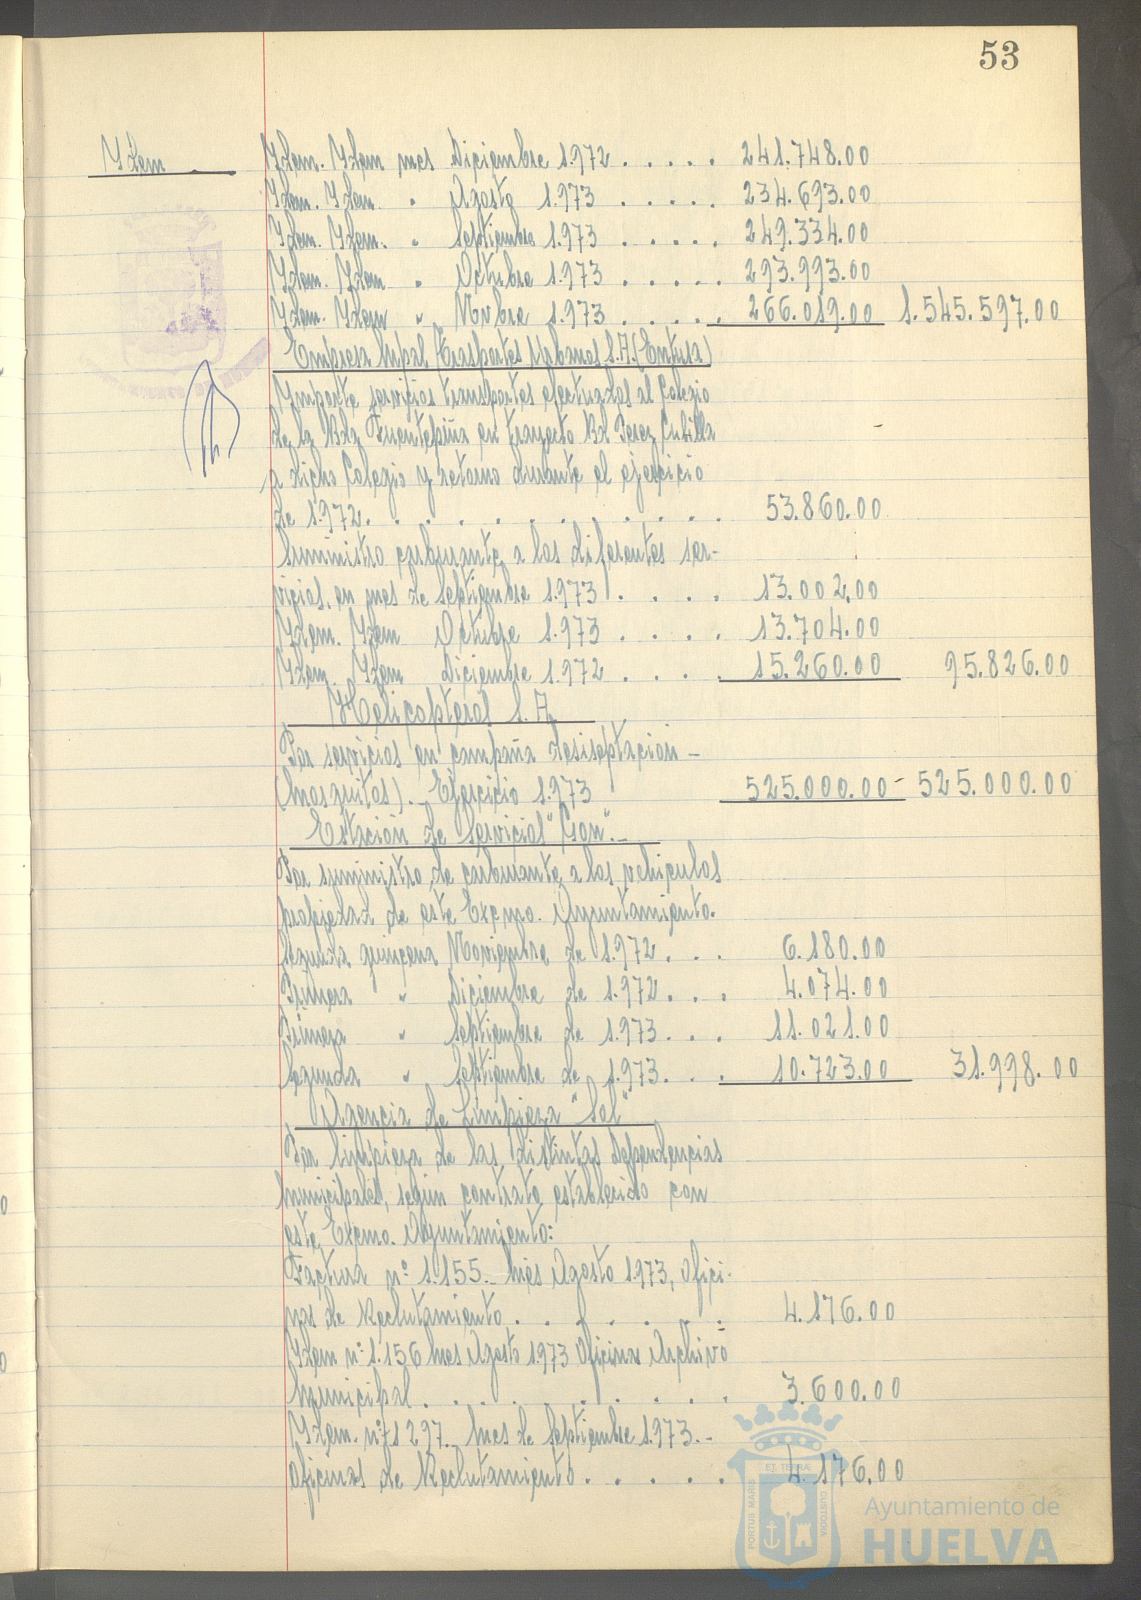 53
Ydem
Ydem. Ydem mes Diciembre 1.972 . . . . . 241.748.00
Ydem. Ydem. " Agosto 1.973 . . . . . 234.693.00
Ydem. Ydem. " Septiembre 1.973 . . . . . 249.334.00
Ydem. Ydem " Octubre 1.973 . . . . . 293.993.00
Ydem. Ydem " Nvbre 1.973 . . . . . 266.019.00 1.545.597.00
Empresa Mpal. Trasportes Urbanos S.A. (Entusa)
Ymporte servicios transportes efectuados al Colegio
de la Bda Fuentepiña en trayecto Bd Perez Cubilla
a dicho Colegio y retorno durante el ejercicio
de 1.972. . . . . . . . . . . 53.860.00
Suministro carburante, a los diferentes ser-
vicios, en mes de Septiembre 1.973 . . . . 13.002,00
Ydem. Ydem Octubre 1.973 . . . . 13.704.00
Ydem. Ydem Diciembre 1.972 . . . . 15.260.00 95.826.00
Helicopteros S.A.
Por servicios en campaña
(Mosquitos). Ejercicio 1.973 525.000.00 - 525.000.00
Estación de Servicios "Gon".-
Por suministro de carburante, a los vehiculos
propiedad de este Excmo. Ayuntamiento.
Segunda quincena Noviembre de 1.972 . . . 6.180.00
Primera " Diciembre de 1.972 . . . 4.074.00
Primera " Septiembre de 1.973 . . . 11.021.00
Segunda " Septiembre de 1.973 . . . 10.723.00 31.998.00
Agencia de Limpieza "Sol"
Por limpieza de las distintas dependencias
Municipales, según contrato establecido con
este Excmo. Ayuntamiento:
Factura nº 1.155.- Mes Agosto 1.973, Ofici-
nas de Reclutamiento . . . . . . 4.176.00
Ydem nº 1.156 Mes Agosto 1.973 Oficina Archivo
Municipal . . . . . . . . . 3.600.00
Ydem. nº 1297.- Mes de Septiembre 1.973.-
Oficinas de Reclutamiento . . . . . 4.176.00
ET TERRAE
PORTUS MARIS
CUSTODIA
Ayuntamiento de
HUELVA